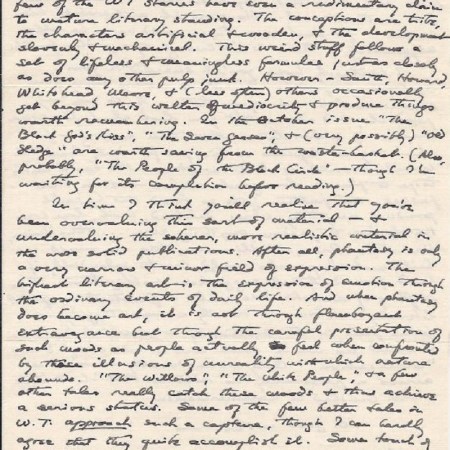 few of the W.T. stories have even a rudimentary claim
to mature literary standing. The conceptions are trite,
the characters artificial & wooden, & the development
slovenly & mechanical. This weird stuff follows a
set of lifeless & meaningless formulae just as closely
as does any other pulp junk. However - Smith, Howard,
Whitehead, Moore, & (less often) others occasionally
get beyond this welter of mediocrity & produce things
worth remembering. In the October issue "The
Black God's Kiss", "The Seven Geases", & (very possibly) "Old
Sledge" are worth saving from the waste-basket. (Also,
probably, "The People of the Black Circle" - though I'm
waiting for its completion before reading.)
In time I think you'll realise that you've
been overvaluing this sort of material - &
undervaluing the soberer, more realistic material in
the more solid publications. After all, phantasy is only
a very narrow & minor field of expression. The
highest literary art is the expression of emotion through
the ordinary events of daily life. And when phantasy
does become art, it is not through flamboyant
extravagance but through the careful presentation of
such moods as people actually do feel when confronted
by those illusions of unreality with which nature
abounds. "The Willows", "The White People", & a few
other tales really catch these moods & thus achieve
a serious status. Some of the few better tales in
W.T. approach such a capture, though I can hardly
agree that they quite accomplish it. Some touch of